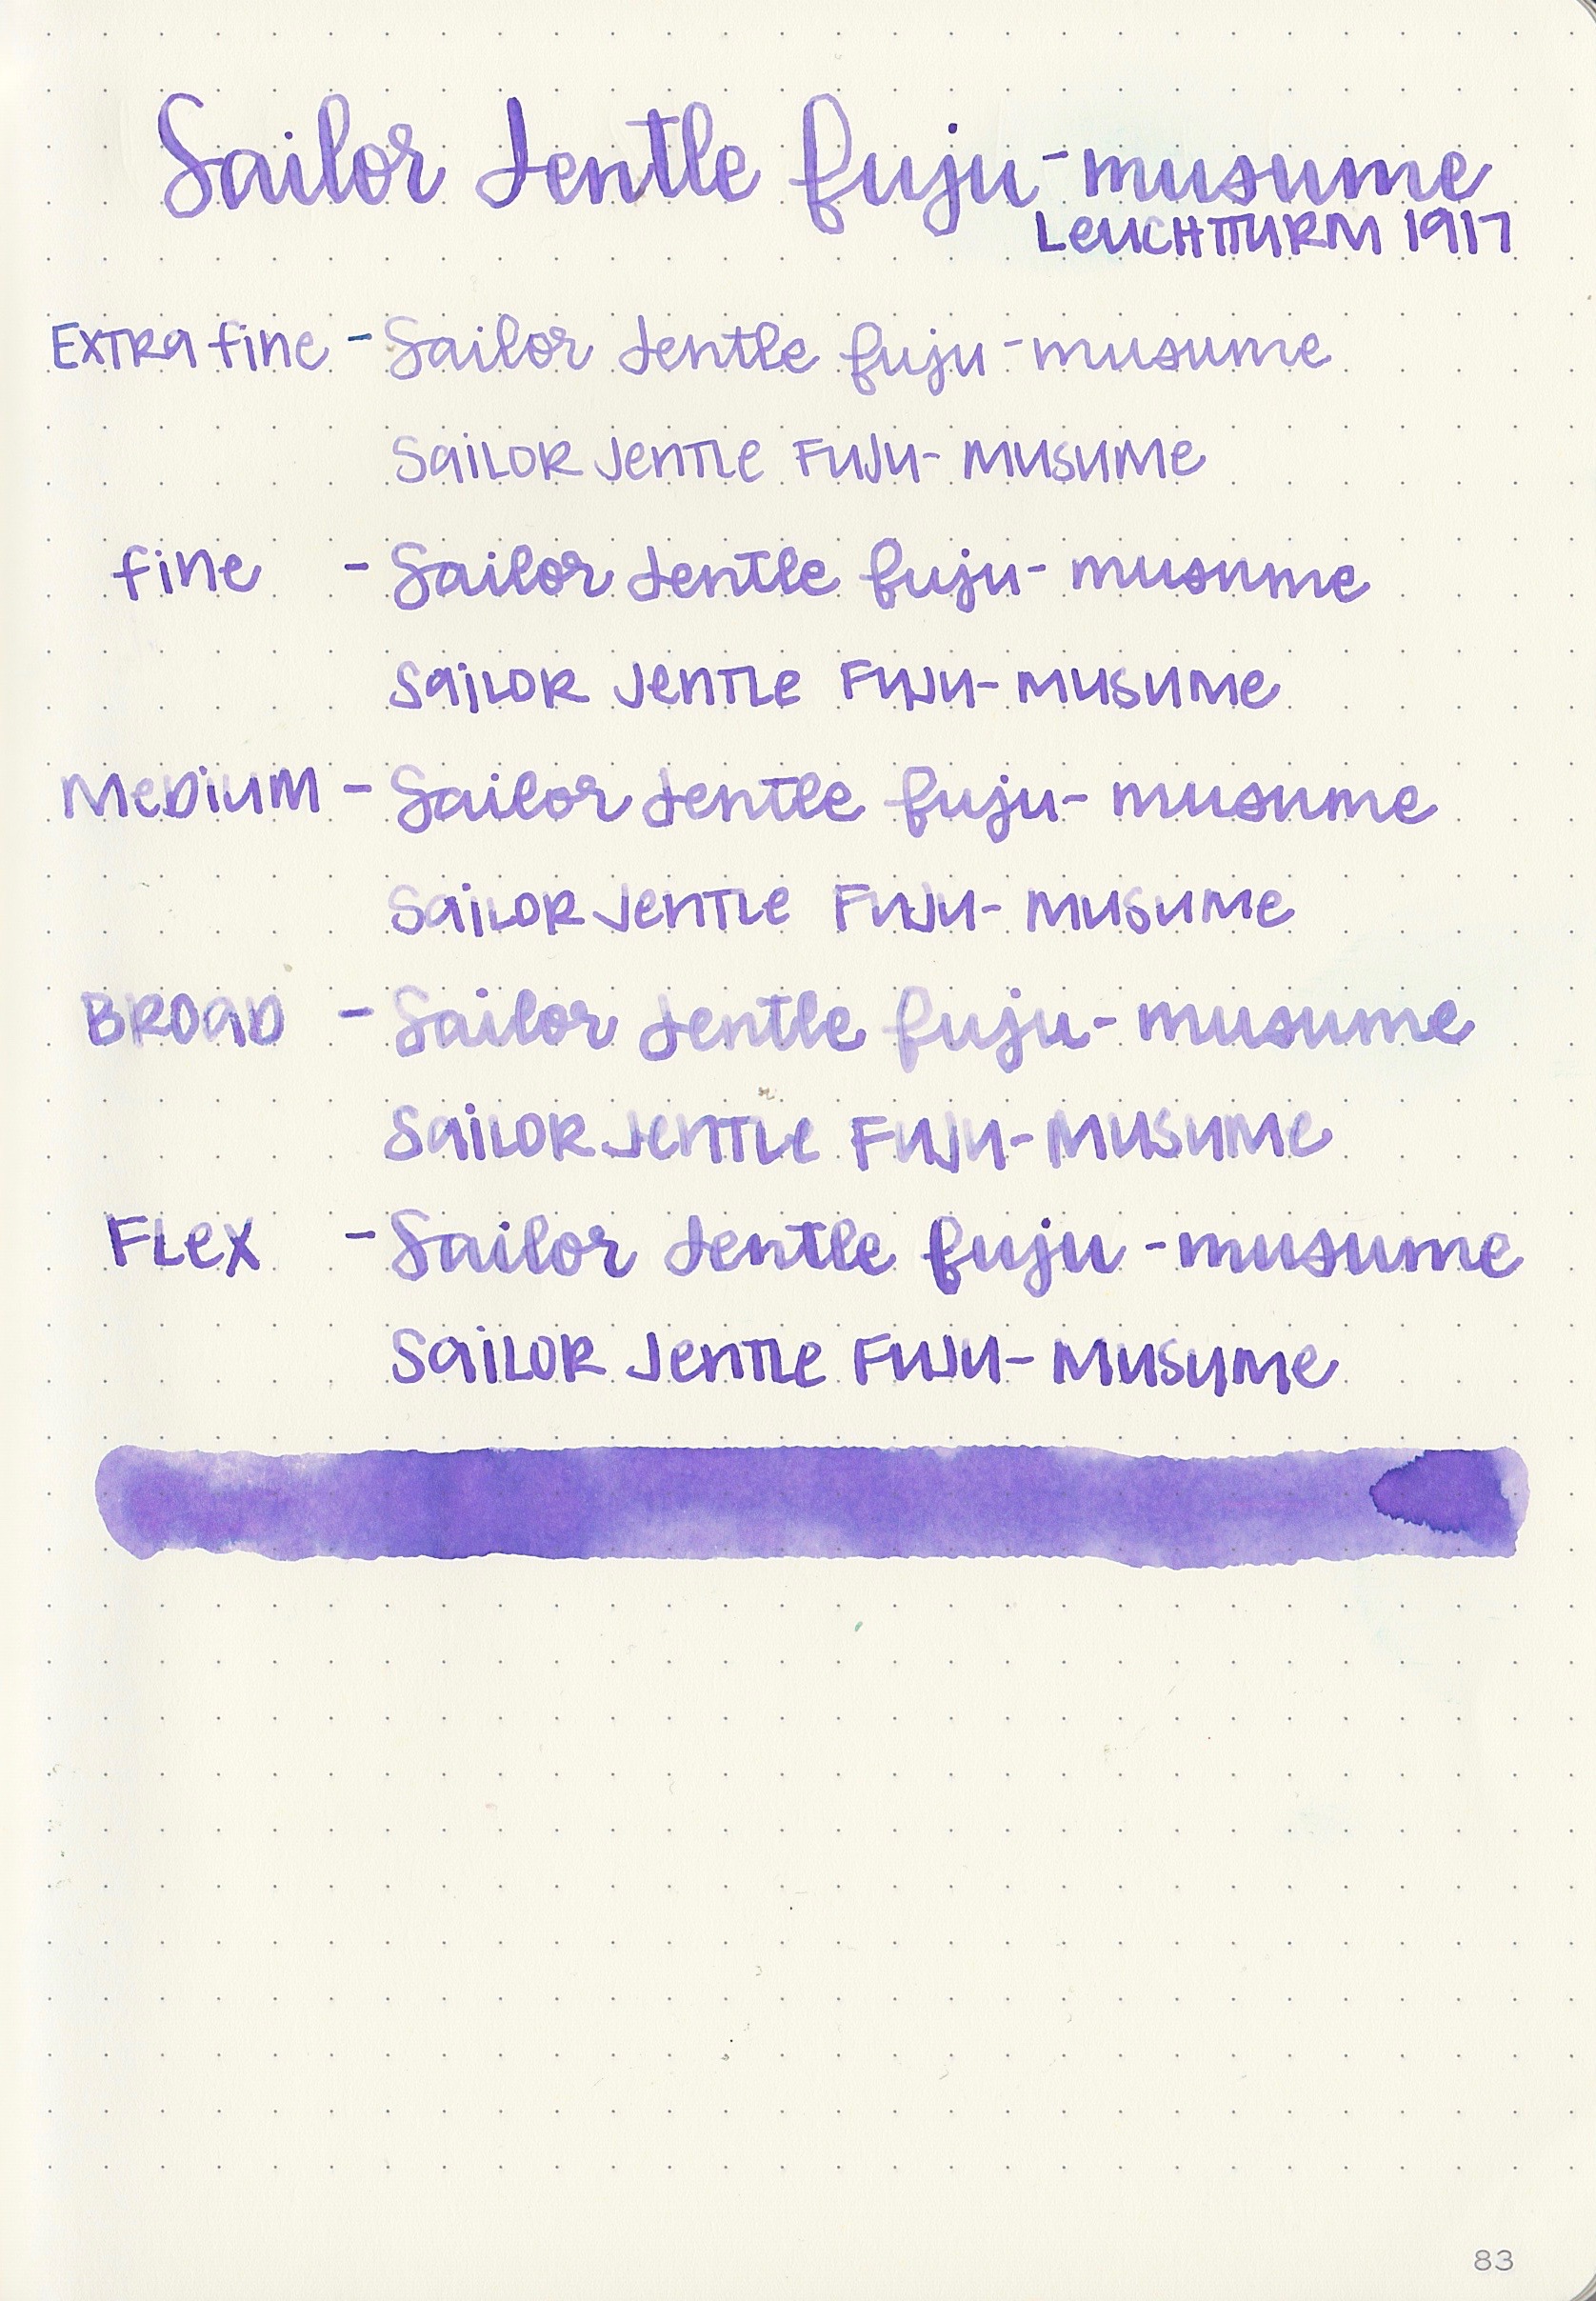 Sailor Jentle fuju-musume
LEUCHTTURM 1917
Extra fine - Sailor Jentle fuju-musume
Sailor Jentle Fuju-musume
fine - Sailor Jentle fuju-musume
Sailor Jentle Fuju-musume
Medium - Sailor Jentle fuju-musume
Sailor Jentle Fuju-musume
Broad - Sailor Jentle fuju-musume
Sailor Jentle Fuju-musume
Flex - Sailor Jentle fuju-musume
Sailor Jentle Fuju-musume
83